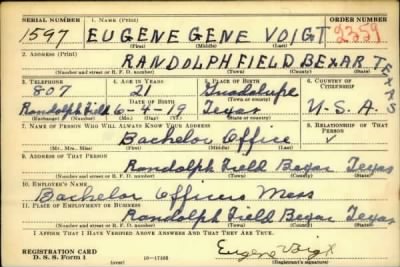 SERIAL NUMBER 1. NAME (Print) ORDER NUMBER
1597 EUGENE GENE VOIGT 2359
(First) (Middle) (Last)
2. ADDRESS (Print)
RANDOLPH FIELD BEXAR TEXAS
(Number and street or R. F. D. number) (Town) (County) (State)
3. TELEPHONE 4. AGE 5. PLACE OF BIRTH 6. COUNTRY OF CITIZENSHIP
807 21 Guadalupe
DATE OF BIRTH (Town or county)
Randolph Field 6-4-19 Texas U.S.A.
(Exchange) (Number) (Mo.) (Day) (Yr.) (State or country)
7. NAME OF PERSON WHO WILL ALWAYS KNOW YOUR ADDRESS 8. RELATIONSHIP OF THAT PERSON
Bachelor Office
(Mr., Mrs., Miss) (First) (Middle) (Last)
9. ADDRESS OF THAT PERSON
Randolph Field Bexar Texas
(Number and street or R. F. D. number) (Town) (County) (State)
10. EMPLOYER'S NAME
Bachelor Officers Mess
11. PLACE OF EMPLOYMENT OR BUSINESS
Randolph Field Bexar Texas
(Number and street or R. F. D. number) (Town) (County) (State)
I AFFIRM THAT I HAVE VERIFIED ABOVE ANSWERS AND THAT THEY ARE TRUE.
REGISTRATION CARD
D. S. S. Form 1 (over) Eugene Voigt
(Registrant's signature)